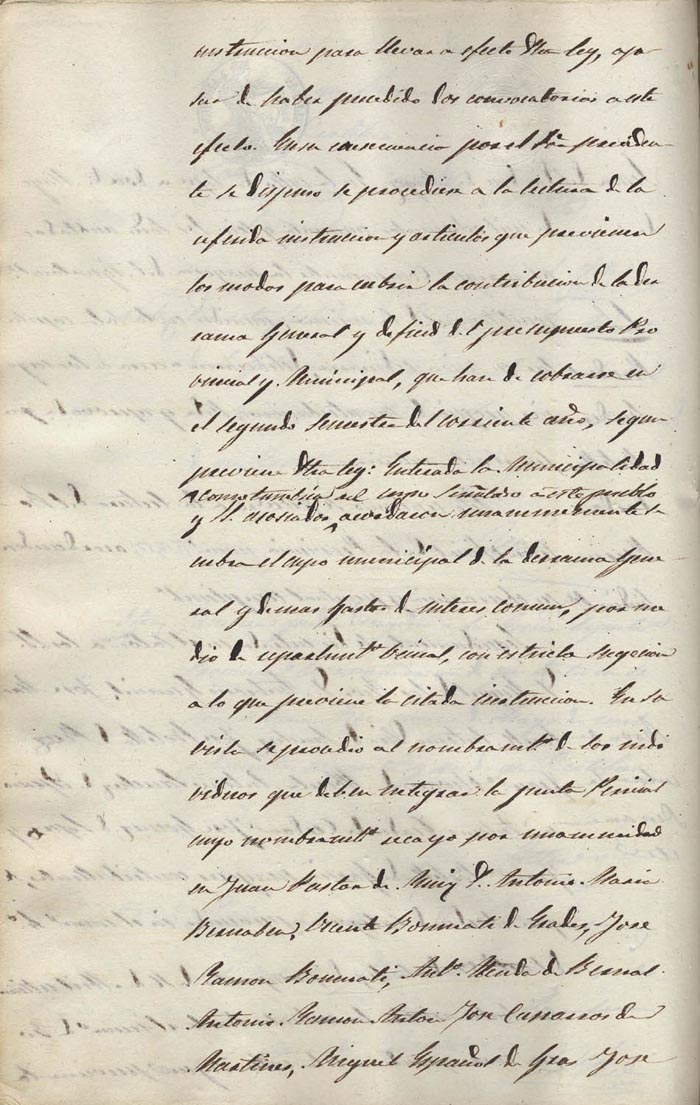 instruccion para llevar a efecto dha ley, ape-
sar de haber precedido dos convocatorias a este
efecto. En su consecuencia por el Sr. presiden-
te se dispuso se procediese a la lectura de la
referida instruccion y articulos que previenen
los modos para cubrir la contribucion de la der-
rama General y deficid del presupuesto Pro
vincial y Municipal, que han de cobrarse en
el segundo semestre del corriente año, segun
previene dha ley: Enterada la Municipalidad
como tambien del cupo señalado a este pueblo
y S. asociados, acordaron unanimemente se
cubra el cupo municipal de la derrama gene-
ral y demas gastos de interes comun, por me
dio de repartimto. vecinal, con estricta sugecion
a lo que previene la citada instruccion. En su
vista se procedio al nombramto. de los indi
viduos que deben integrar la junta Pericial
cuyo nombramto. recayo por unanimidad
en Juan Pastor de Muig D. Antonio Maria
Bernabeu, Vicente Bonmati de Grades, Jose
Ramon Bonmati, Anto. de Bernal
Antonio Ramon Jose Canassos de
Martines, Miguel Español de Gras Jose